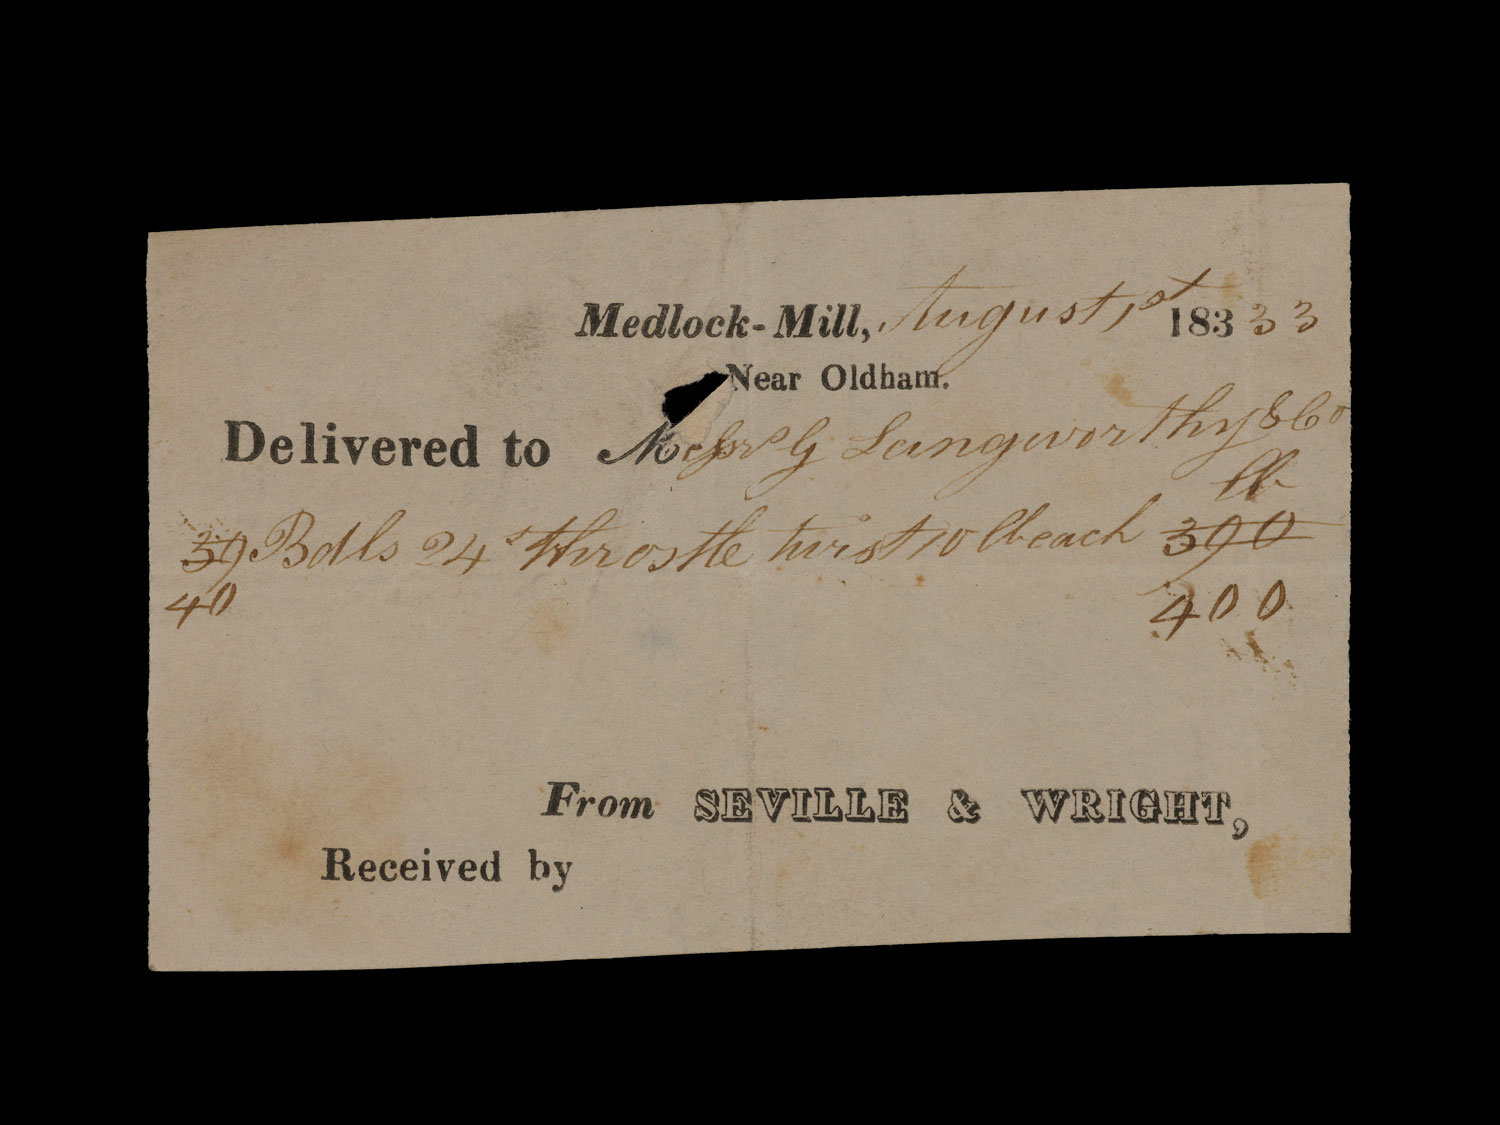 Medlock-Mill, August 1st 18333
Near Oldham.
Delivered to Messrs G Langworthy & Co
lb
39 Bdls 24s throstle twist 10 lb each 390
40 400
From SEVILLE & WRIGHT,
Received by